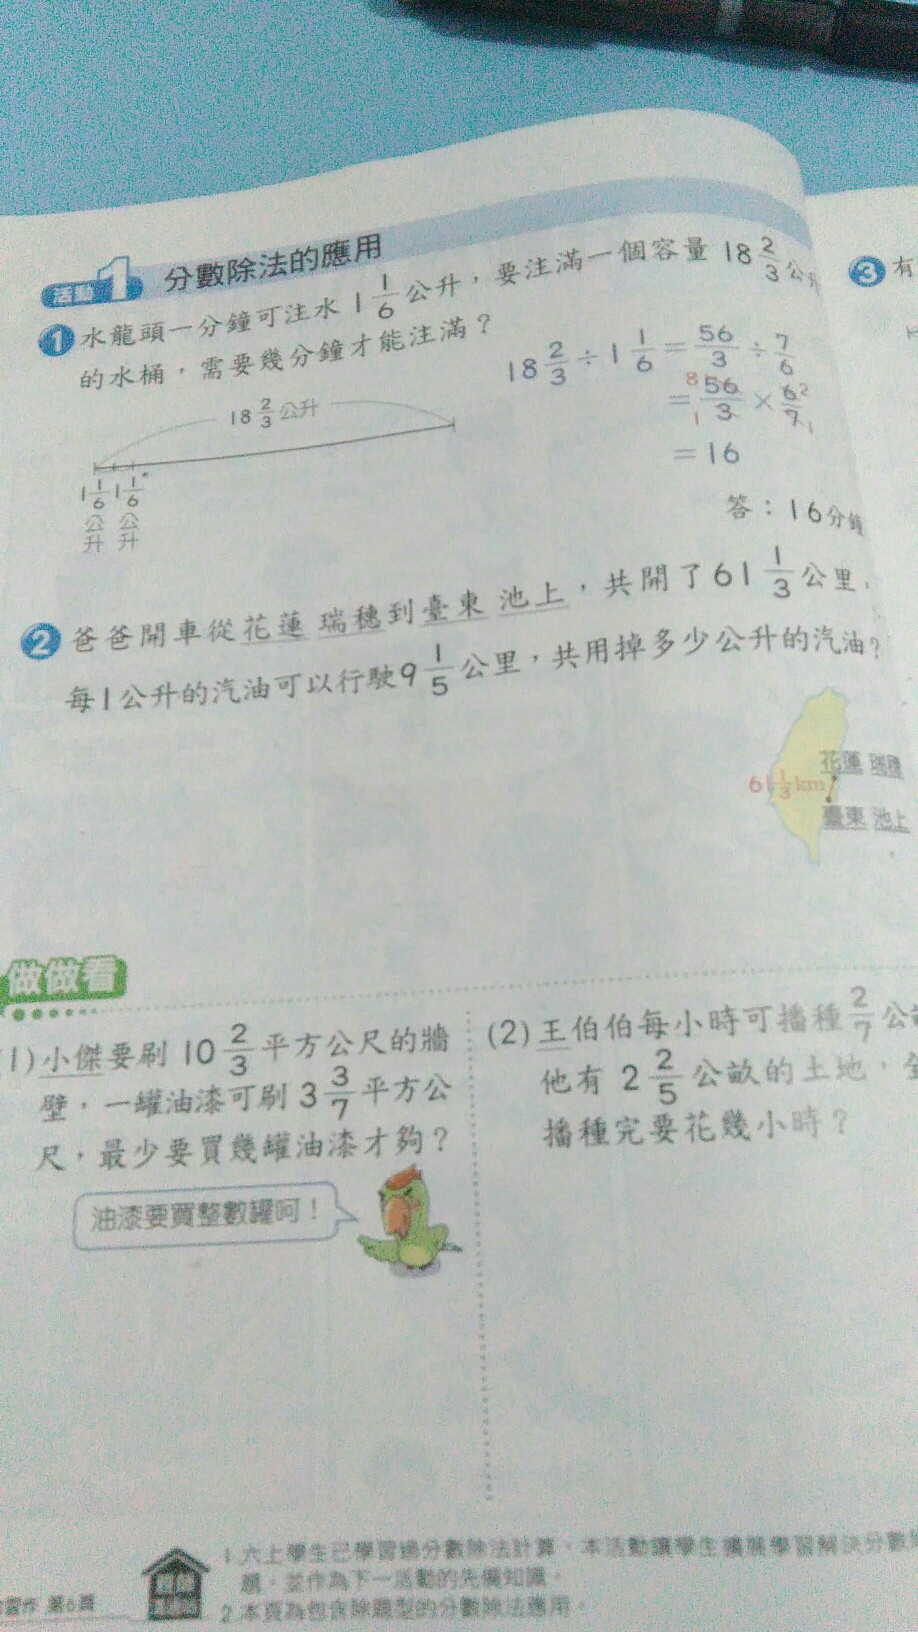 活動1 分數除法的應用
1 水龍頭一分鐘可注水 1 1/6 公升，要注滿一個容量 18 2/3 公升
的水桶，需要幾分鐘才能注滿？
18 2/3 公升
1 1/6 公升 1 1/6 公升
18 2/3 ÷ 1 1/6 = 56/3 ÷ 7/6
= 56/3 × 6/7
8 1 2 1
= 16
答：16分鐘
3 有
2 爸爸開車從花蓮 瑞穗到臺東 池上，共開了 61 1/3 公里，
每1公升的汽油可以行駛 9 1/5 公里，共用掉多少公升的汽油？
花蓮 瑞穗
61 1/3 km
臺東 池上
做做看
(1) 小傑要刷 10 2/3 平方公尺的牆
壁，一罐油漆可刷 3 3/7 平方公
尺，最少要買幾罐油漆才夠？
油漆要買整數罐呵！
(2) 王伯伯每小時可播種 2/7 公
他有 2 2/5 公畝的土地，
播種完要花幾小時？
1.六上學生已學習過分數除法計算，本活動讓學生擴展學習解決分數
題，並作為下一活動的先備知識。
2.本頁為包含除題型的分數除法應用。
習作 第6頁